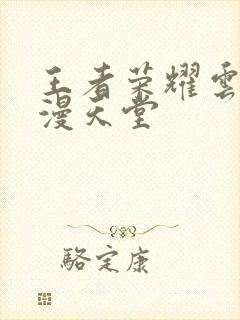 王者荣耀雲
漫天堂
駱定康